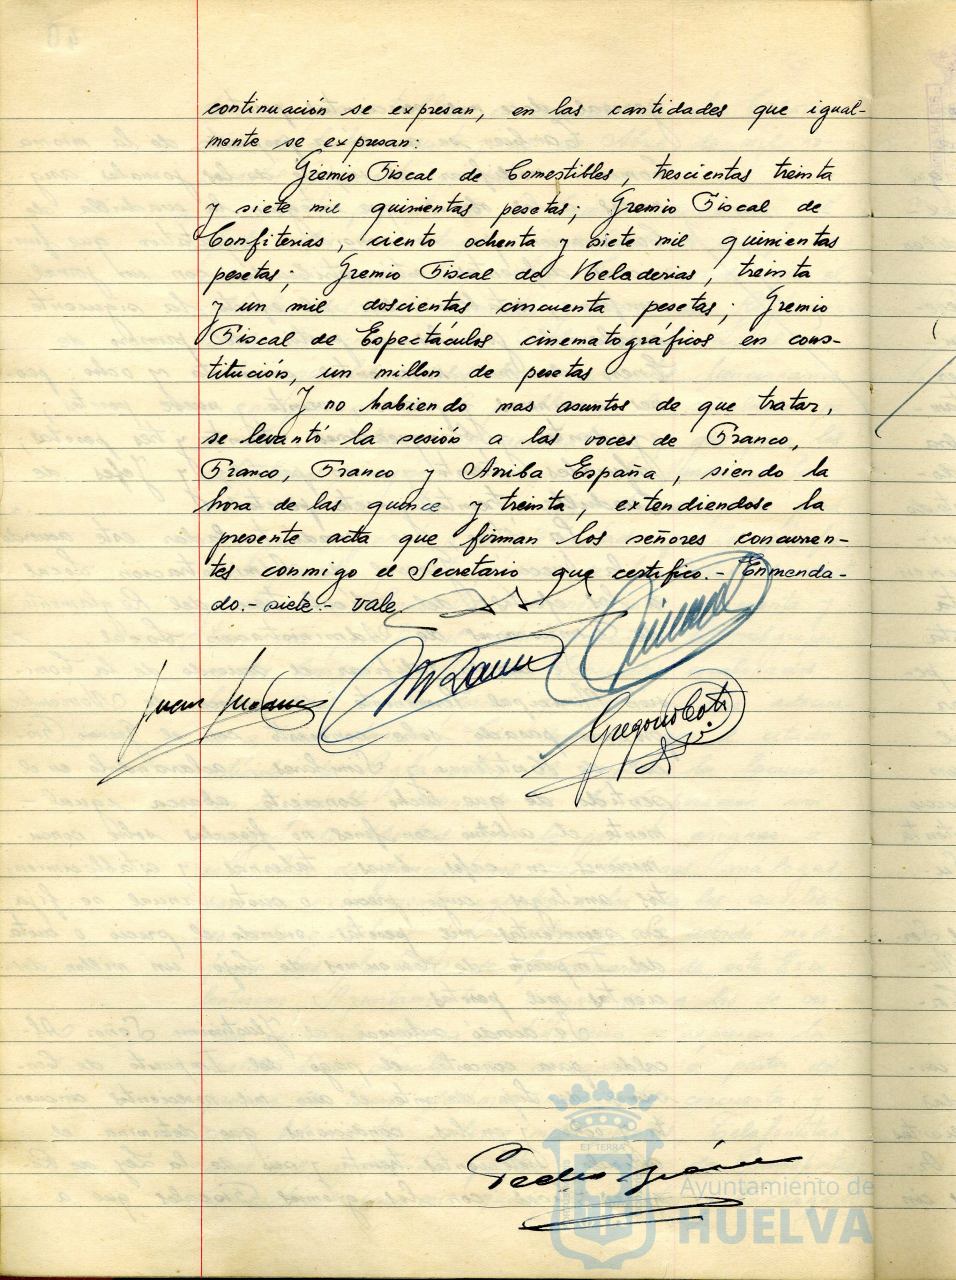 continuación se expresan, en las cantidades que igual-
mente se expresan:
Gremio Fiscal de Comestibles, trescientas treinta
y siete mil quinientas pesetas; Gremio Fiscal de
Confiterias, ciento ochenta y siete mil quinientas
pesetas; Gremio Fiscal de Heladerias, treinta
y un mil doscientas cincuenta pesetas; Gremio
Fiscal de Espectáculos cinematográficos en cons-
titución, un millon de pesetas
Y no habiendo mas asuntos de que tratar,
se levantó la sesión a las voces de Franco,
Franco, Franco y Arriba España, siendo la
hora de las quince y treinta, extendiendose la
presente acta que firman los señores concurren-
tes conmigo el Secretario que certifico.- Enmenda-
do.- siete.- vale.
Juan
Gregorio
Pedro
ET TERRA
Ayuntamiento de
HUELVA